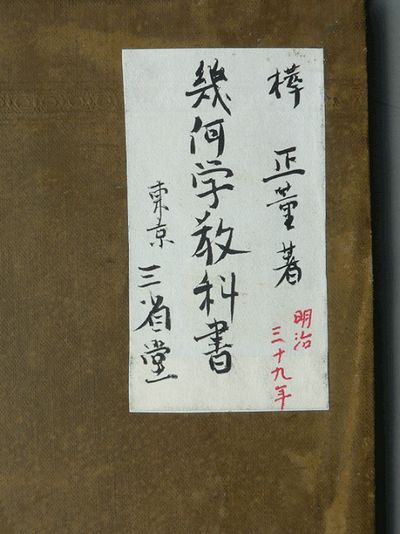 樺正董著
明治
三十九年
幾何学教科書
東京三省堂